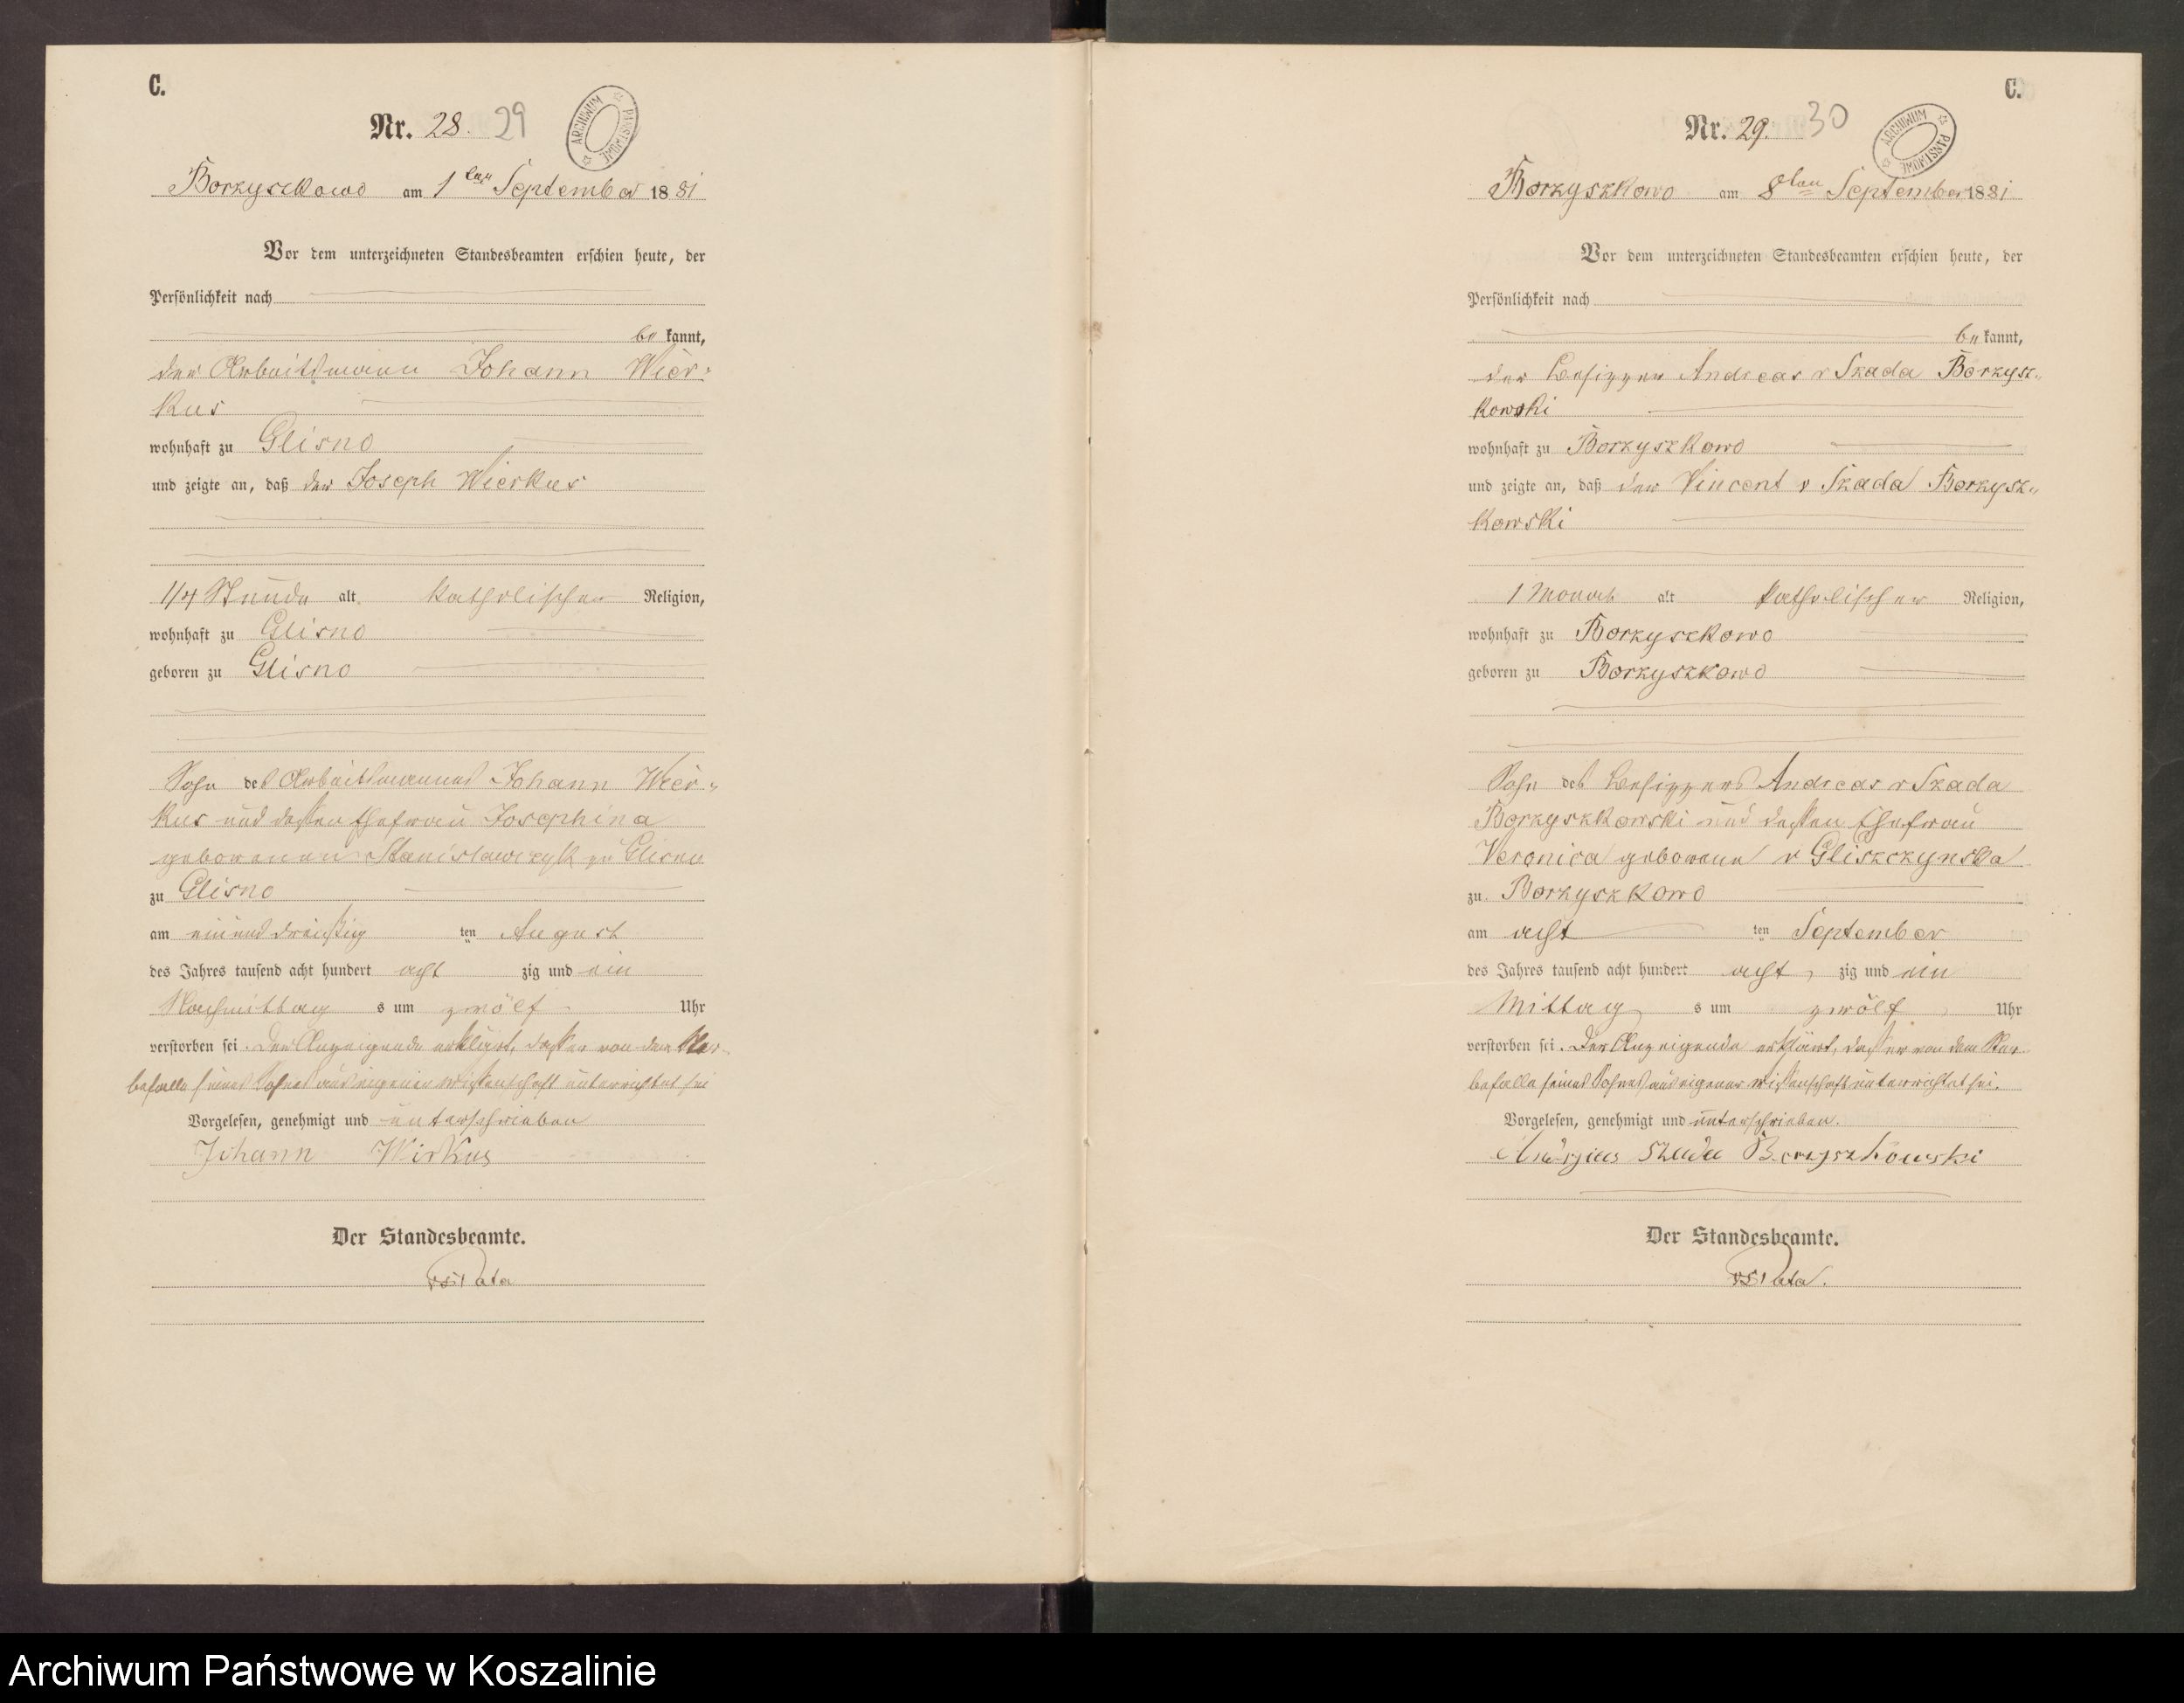 C.
Nr. 28. 29
ARCHIWUM PAŃSTWOWE
Borzyszkowo am 1ten September 1881
Vor dem unterzeichneten Standesbeamten erschien heute, der
Persönlichkeit nach
be kannt,
der Arbeitsmann Johann Wier-
kus
wohnhaft zu Glisno
und zeigte an, daß der Joseph Wierkus
1/4 Stunde alt, katholischer Religion,
wohnhaft zu Glisno
geboren zu Glisno
Sohn des Arbeitsmannes Johann Wier-
kus und dessen Ehefrau Josephina
geborenen Stanislawczyk zu Glisno
zu Glisno
am einunddreißig ten August
des Jahres tausend acht hundert acht zig und ein
Nachmittag s um zwölf Uhr
verstorben sei. Der Anzeigende erklärt, daß er von dem Ster-
befalle seines Sohnes aus eigener Wissenschaft unterrichtet sei
Vorgelesen, genehmigt und unterschrieben
Johann Wirkus
Der Standesbeamte.
C.
Nr. 29. 30
ARCHIWUM PAŃSTWOWE
Borzyszkowo am 8ten September 1881
Vor dem unterzeichneten Standesbeamten erschien heute, der
Persönlichkeit nach
be kannt,
der Besitzer Andreas v Skada Borzysz-
kowski
wohnhaft zu Borzyszkowo
und zeigte an, daß der Vincent v Skada Borzysz-
kowski
1 Monat alt katholischer Religion,
wohnhaft zu Borzyszkowo
geboren zu Borzyszkowo
Sohn des Besitzers Andreas v Skada
Borzyszkowski und dessen Ehefrau
Veronica geborene v Gliszczynska
zu Borzyszkowo
am acht ten September
des Jahres tausend acht hundert acht zig und ein
Mittag s um zwölf Uhr
verstorben sei. Der Anzeigende erklärt, daß er von dem Ster-
befalle seines Sohnes aus eigener Wissenschaft unterrichtet sei.
Vorgelesen, genehmigt und unterschrieben.
Borzyszkowski
Der Standesbeamte.
Archiwum Państwowe w Koszalinie